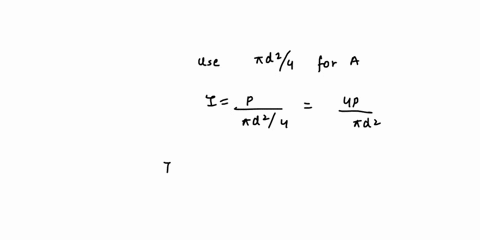 use πd²/4 for A
I = P / (πd²/4) = 4P / πd²